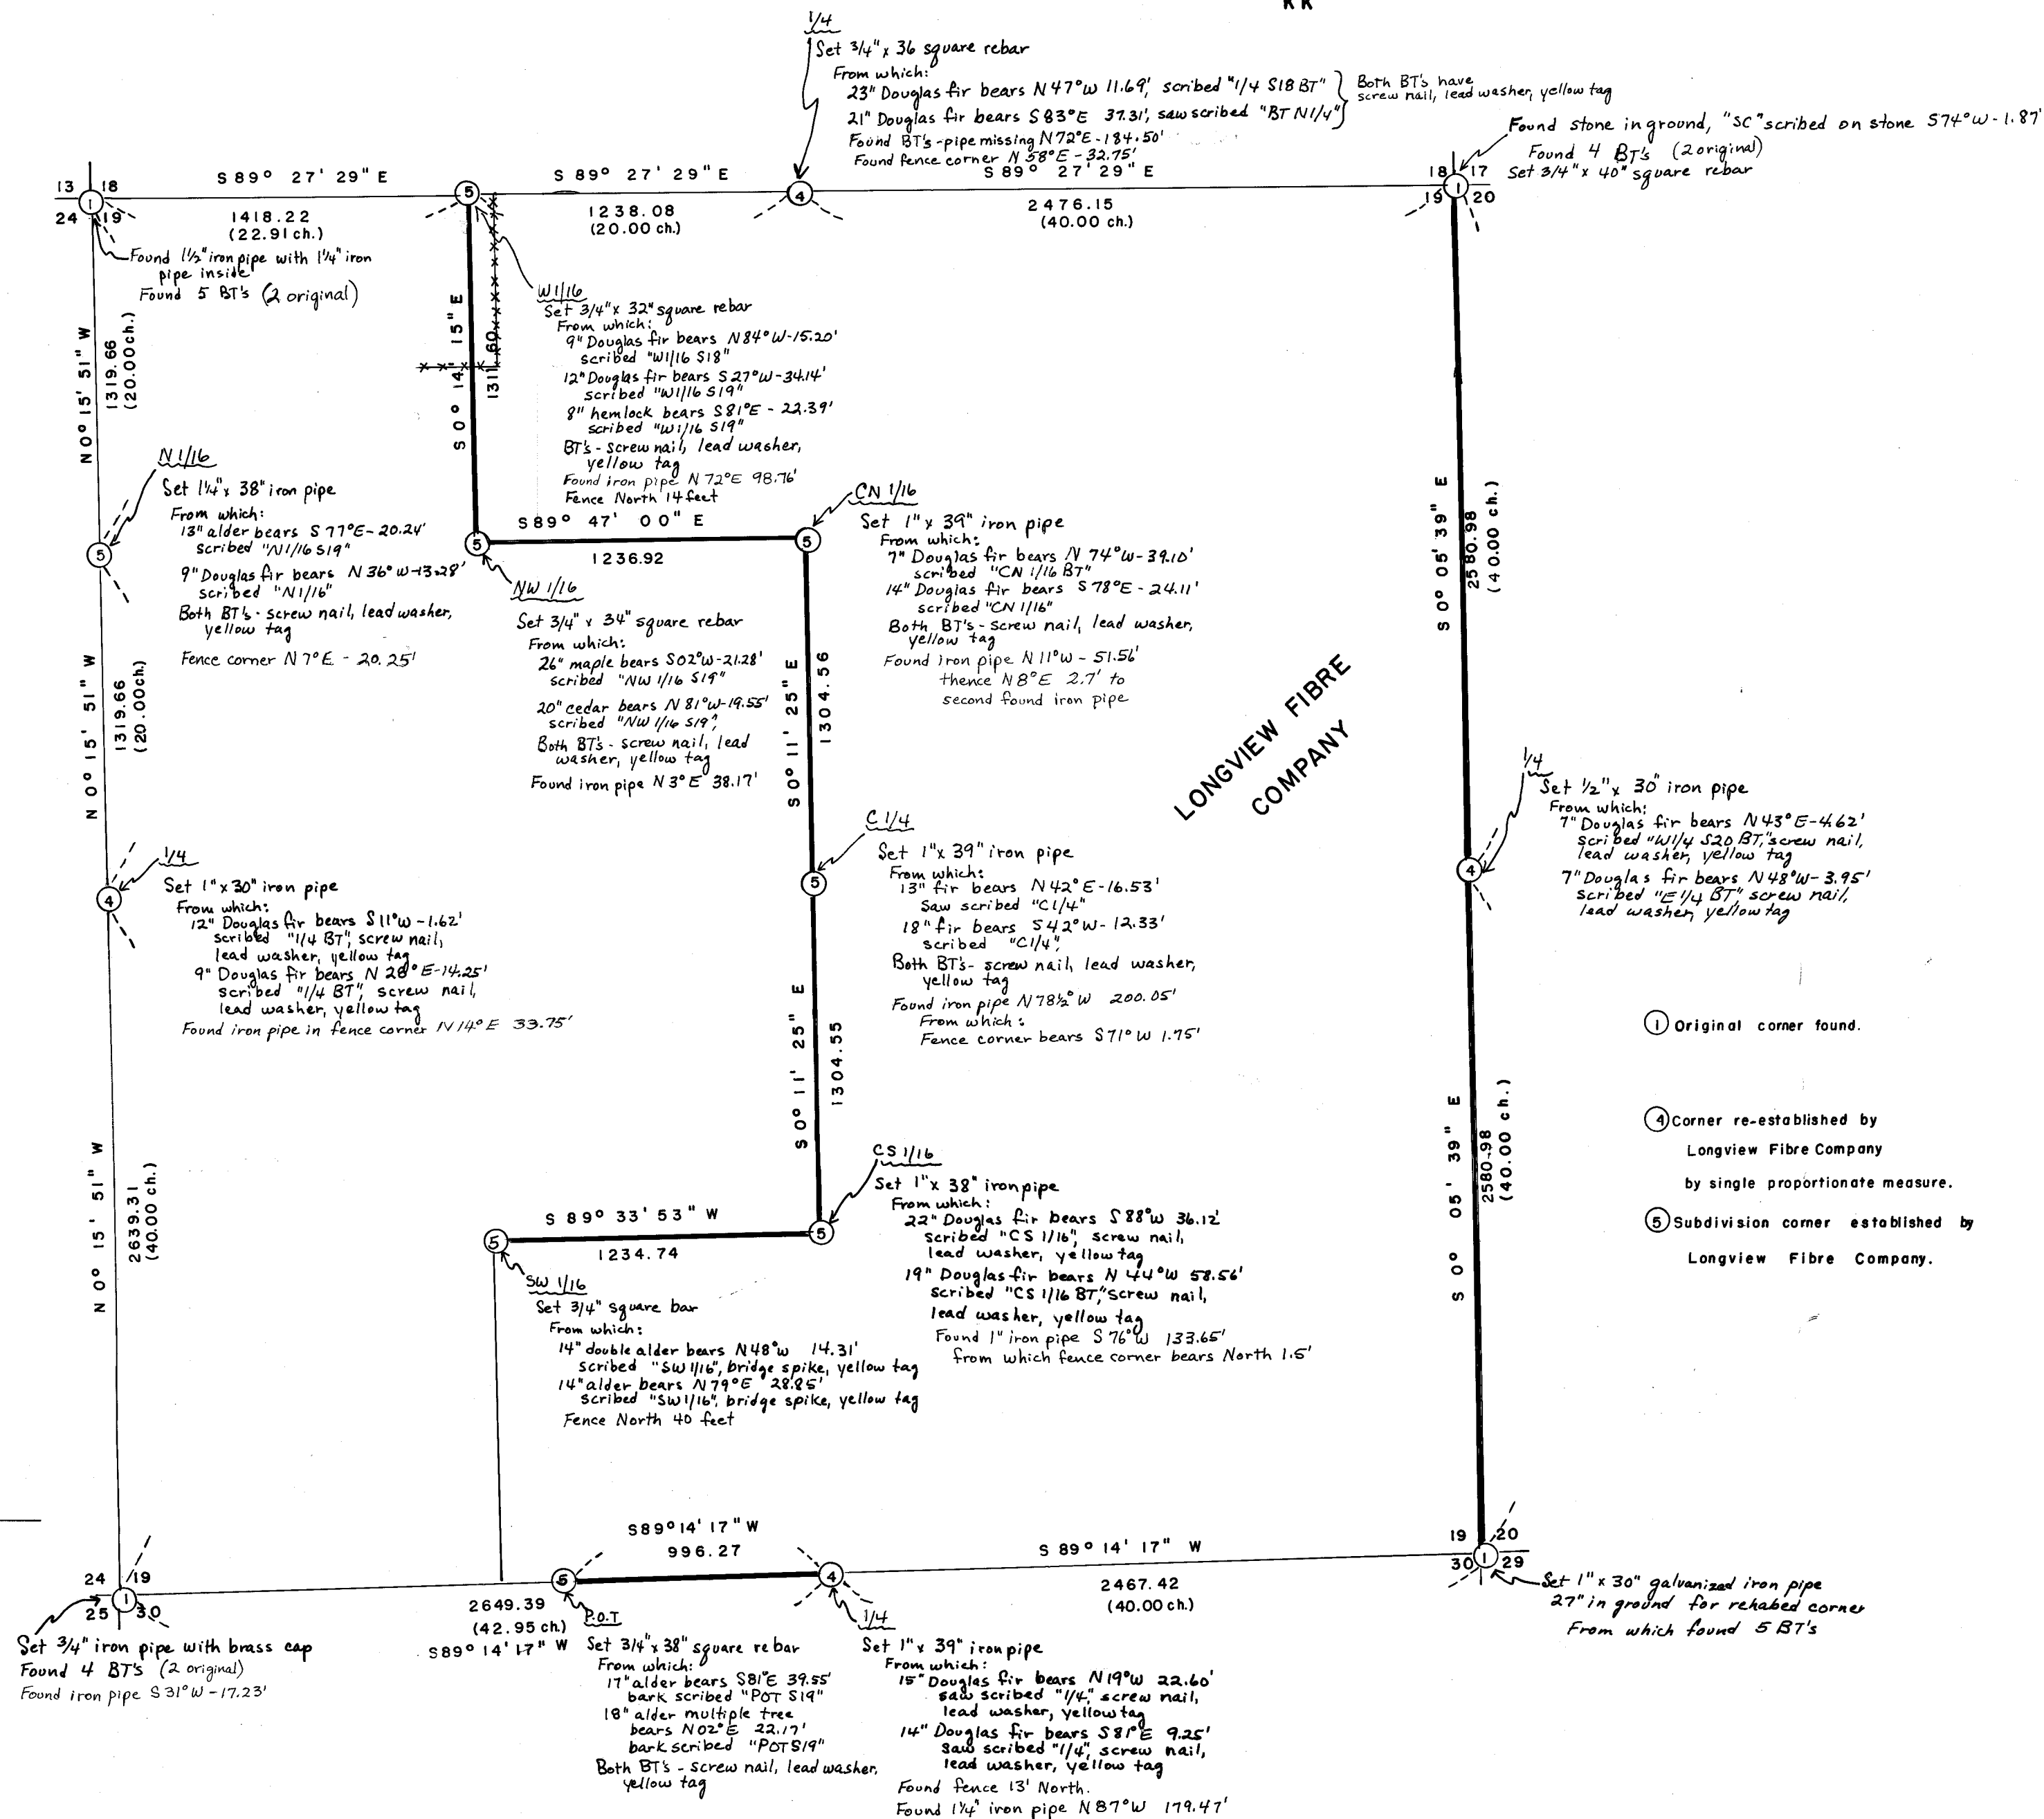 1/4
Set 3/4" x 36 square rebar
From which:
23" Douglas fir bears N47°W 11.69', scribed "1/4 S18 BT"
21" Douglas fir bears S83°E 37.31', saw scribed "BT N1/4"
Both BT's have
screw nail, lead washer, yellow tag
Found BT's-pipe missing N72°E-184.50'
Found fence corner N58°E-32.75'
Found stone in ground, "SC" scribed on stone S74°W-1.87'
Found 4 BT's (2 original)
Set 3/4" x 40" square rebar
13 18
24 19
1
S 89° 27' 29" E
1418.22
(22.91 ch.)
5
S 89° 27' 29" E
1238.08
(20.00 ch.)
4
S 89° 27' 29" E
2476.15
(40.00 ch.)
18 17
19 20
1
Found 1½" iron pipe with 1¼" iron
pipe inside
Found 5 BT's (2 original)
N 0° 15' 51" W
1319.66
(20.00ch.)
S 0° 14' 15" E
1311.60
W1/16
Set 3/4" x 32" square rebar
From which:
9" Douglas fir bears N84°W-15.20'
scribed "W1/16 S18"
12" Douglas fir bears S27°W-34.14'
scribed "W1/16 S19"
8" hemlock bears S81°E - 22.39'
scribed "W1/16 S19"
BT's - screw nail, lead washer,
yellow tag
Found iron pipe N 72°E 98.76'
Fence North 14 feet
N 1/16
Set 1¼" x 38" iron pipe
From which:
13" alder bears S 77°E-20.24'
scribed "N1/16 S19"
9" Douglas fir bears N36°W-13.28'
scribed "N1/16"
Both BT's - screw nail, lead washer,
yellow tag
Fence corner N 7°E - 20.25'
5
S89° 47' 00" E
1236.92
5
5
NW 1/16
Set 3/4" x 34" square rebar
From which:
26" maple bears S02°W-21.28'
scribed "NW 1/16 S19"
20" cedar bears N 81°W-19.55'
scribed "NW 1/16 S19",
Both BT's - screw nail, lead
washer, yellow tag
Found iron pipe N 3°E 38.17'
CN 1/16
Set 1" x 39" iron pipe
From which:
7" Douglas fir bears N 74°W-39.10'
scribed "CN 1/16 BT"
14" Douglas fir bears S78°E - 24.11'
scribed "CN 1/16"
Both BT's - screw nail, lead washer,
yellow tag
Found iron pipe N 11°W - 51.56'
thence N 8°E 2.7' to
second found iron pipe
S 0° 05' 39" E
2580.98
(40.00 ch.)
N 0° 15' 51" W
1319.66
(20.00ch.)
S 0° 11' 25" E
1304.56
LONGVIEW FIBRE
COMPANY
1/4
Set ½" x 30" iron pipe
From which:
7" Douglas fir bears N43°E-4.62'
scribed "W1/4 S20 BT," screw nail,
lead washer, yellow tag
7" Douglas fir bears N48°W-3.95'
scribed "E1/4 BT", screw nail,
lead washer, yellow tag
4
1/4
Set 1" x 30" iron pipe
From which:
12" Douglas fir bears S11°W-1.62'
scribed "1/4 BT", screw nail,
lead washer, yellow tag
9" Douglas fir bears N 28°E-14.25'
scribed "1/4 BT", screw nail,
lead washer, yellow tag
Found iron pipe in fence corner N14°E 33.75'
4
C 1/4
Set 1" x 39" iron pipe
From which:
13" fir bears N42°E-16.53'
Saw scribed "C1/4"
18" fir bears S42°W-12.33'
scribed "C1/4",
Both BT's- screw nail, lead washer,
yellow tag
Found iron pipe N78½°W 200.05'
From which:
Fence corner bears S71°W 1.75'
5
S 0° 11' 25" E
1304.55
1 Original corner found.
4 Corner re-established by
Longview Fibre Company
by single proportionate measure.
5 Subdivision corner established by
Longview Fibre Company.
N 0° 15' 51" W
2639.31
(40.00 ch.)
S 0° 05' 39" E
2580.98
(40.00 ch.)
CS 1/16
Set 1" x 38" iron pipe
From which:
22" Douglas fir bears S88°W 36.12'
scribed "CS 1/16", screw nail,
lead washer, yellow tag
19" Douglas fir bears N 44°W 58.56'
scribed "CS 1/16 BT," screw nail,
lead washer, yellow tag
Found 1" iron pipe S 76°W 133.65'
from which fence corner bears North 1.5'
S 89° 33' 53" W
1234.74
5
5
SW 1/16
Set 3/4" square bar
From which:
14" double alder bears N48°W 14.31'
scribed "SW 1/16", bridge spike, yellow tag
14" alder bears N79°E 28.85'
scribed "SW 1/16", bridge spike, yellow tag
Fence North 40 feet
S89°14' 17" W
996.27
S 89° 14' 17" W
2467.42
(40.00 ch.)
24 19
25 30
1
5
4
19 20
30 29
1
2649.39
(42.95 ch.)
S89° 14' 17" W
Set 3/4" iron pipe with brass cap
Found 4 BT's (2 original)
Found iron pipe S 31°W-17.23'
P.O.T
Set 3/4" x 38" square rebar
From which:
17" alder bears S81°E 39.55'
bark scribed "POT S19"
18" alder multiple tree
bears N02°E 22.17'
bark scribed "POT S19"
Both BT's - screw nail, lead washer,
yellow tag
1/4
Set 1" x 39" iron pipe
From which:
15" Douglas fir bears N19°W 22.60'
saw scribed "1/4," screw nail,
lead washer, yellow tag
14" Douglas fir bears S81°E 9.25'
Saw scribed "1/4", screw nail,
lead washer, yellow tag
Found fence 13' North.
Found 1¼" iron pipe N87°W 179.47'
Set 1" x 30" galvanized iron pipe
27" in ground for rehabed corner
From which found 5 BT's